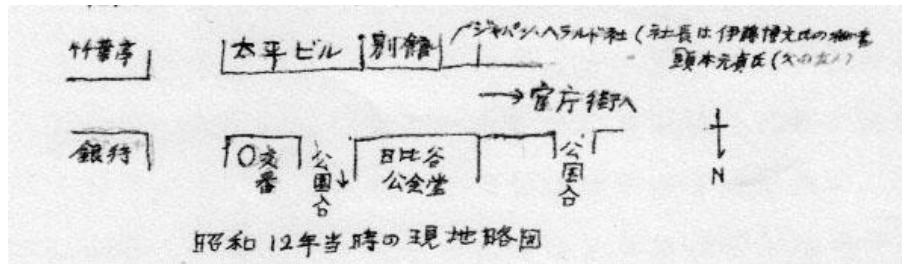 竹葉亭
太平ビル
別館
ジャパン・ヘラルド社(社長は伊藤博文氏の秘書
頭本元貞氏(父の友人)
→官庁街へ
〇交番
公園
日比谷
公会堂
公園
N
昭和12年当時の現地略図